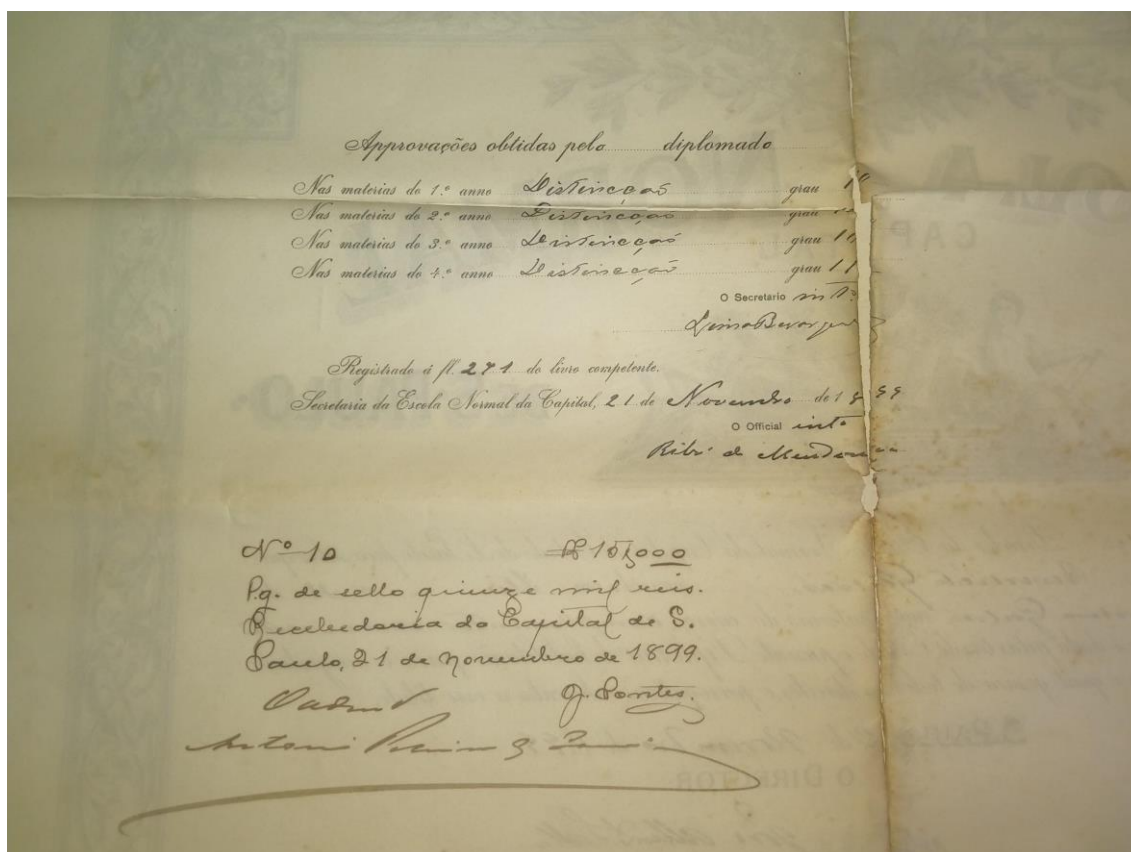 Approvações obtidas pelo diplomado
Nas materias do 1.º anno Distincção grau 10
Nas materias do 2.º anno Distincção grau
Nas materias do 3.º anno Distincção grau 10
Nas materias do 4.º anno Distincção grau 11
O Secretario int.º
Registrado á fl. 271 do livro competente.
Secretaria da Escola Normal da Capital, 21 de Novembro de 1899
O Official int.º
Ribr.º de Mendonça
Nº 10 R$ 15$000
Pg. de sello quinze mil reis.
Recebedoria da Capital de S.
Paulo, 21 de novembro de 1899.
J. Pontes.
Antonio